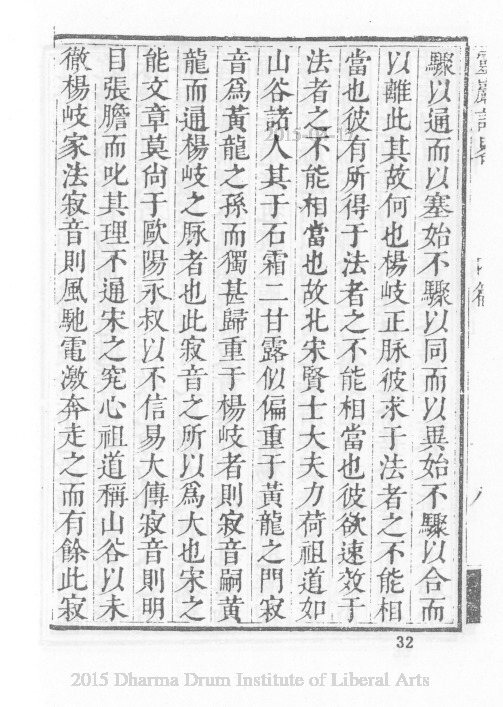 驟以通而以塞始不驟以同而以異始不驟以合而
以離此其故何也楊岐正脉彼求于法者之不能相
當也彼有所得于法者之不能相當也彼欲速效于
法者之不能相當也故北宋賢士大夫力荷祖道如
山谷諸人其于石霜二甘露似偏重于黃龍之門寂
音爲黃龍之孫而獨甚歸重于楊岐者則寂音嗣黃
龍而通楊岐之脉者也此寂音之所以爲大也宋之
能文章莫尙于歐陽永叔以不信易大傳寂音則明
目張膽而叱其理不通宋之究心祖道稱山谷以未
徹楊岐家法寂音則風馳電激奔走之而有餘此寂
32
2015 Dharma Drum Institute of Liberal Arts